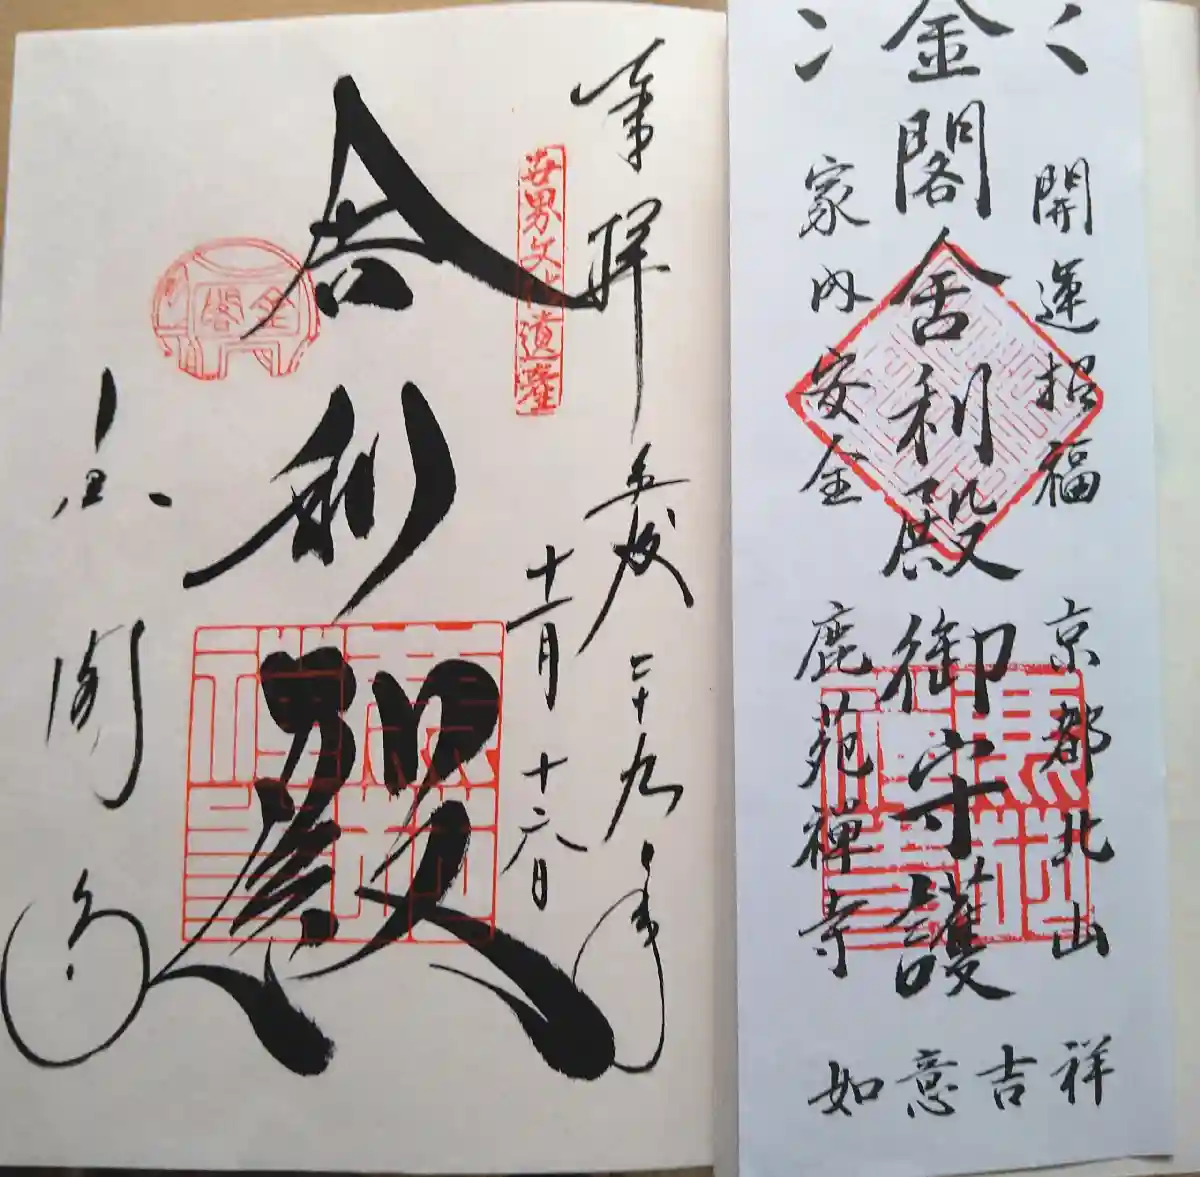 開運招福 京都北山
金閣舎利殿御守護
家内安全 鹿苑禅寺
如意吉祥
奉拝 平成二十九年
十六日
世界文化遺産
舎利殿
金閣
鹿苑禅寺
金閣寺